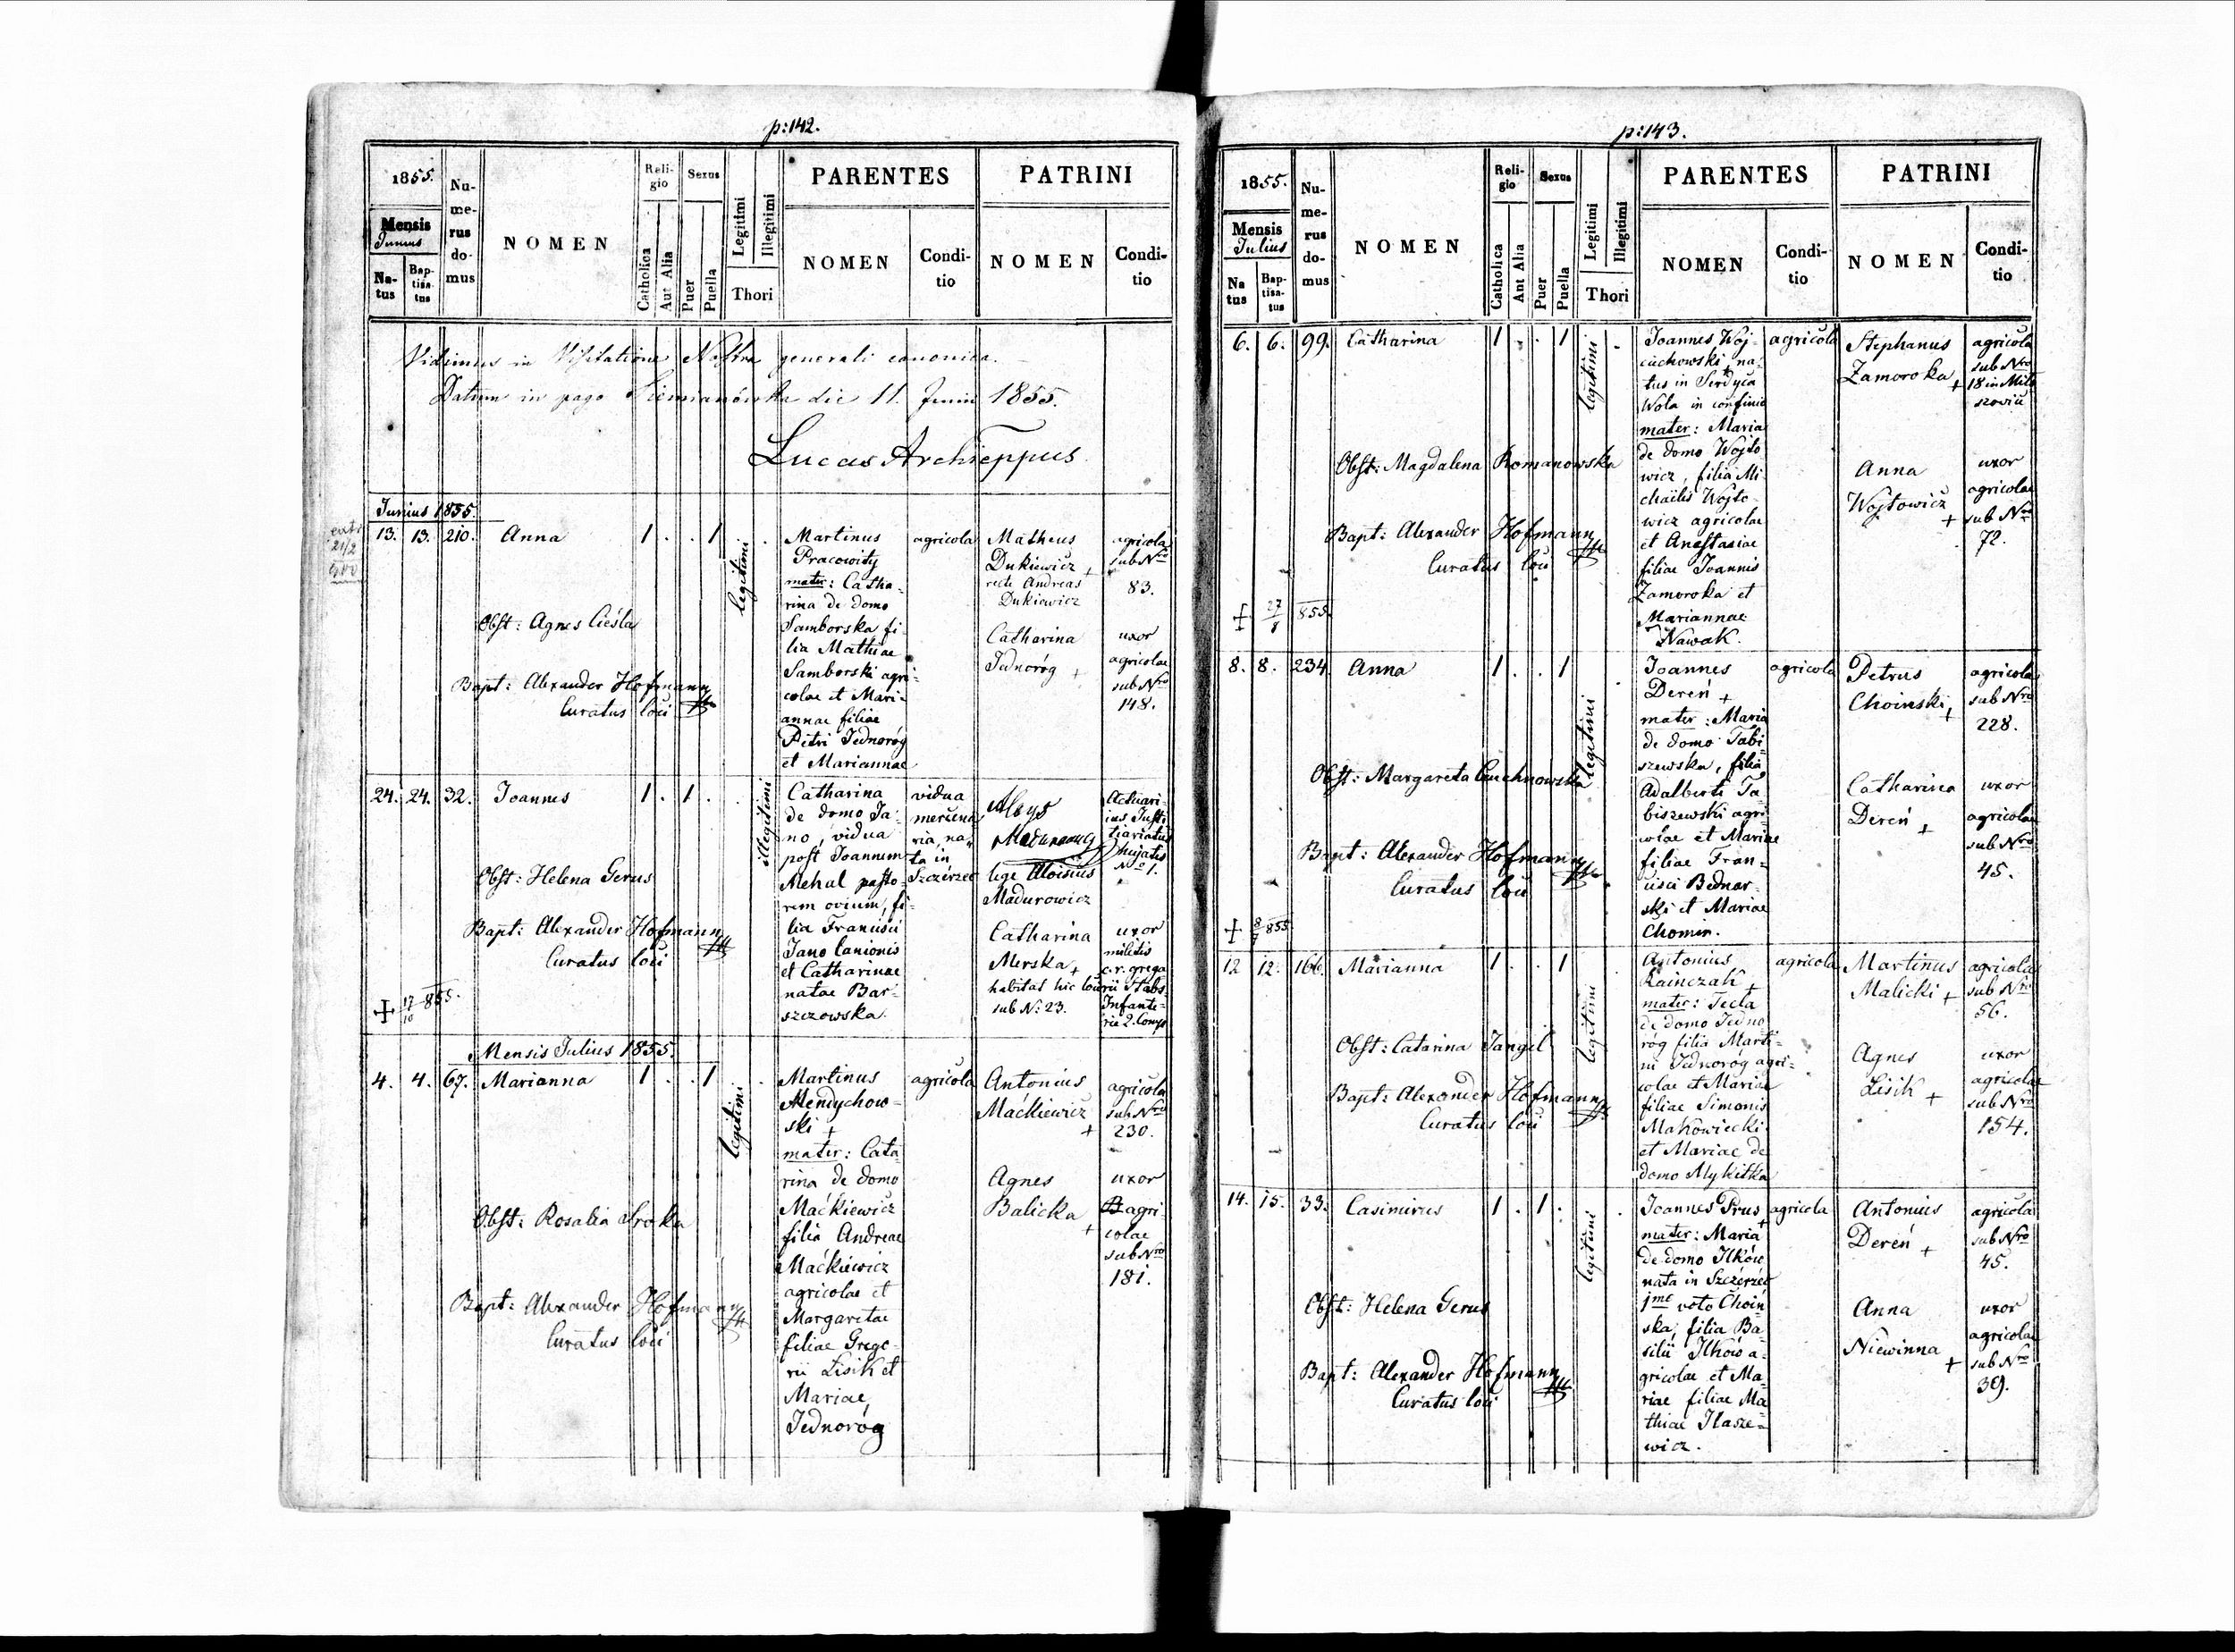 p: 142.
1855.
Mensis
Junius
Na-
tus
Bap-
tisa-
tus
Nu-
me-
rus
do-
mus
NOMEN
Reli-
gio
Catholica
Aut Alia
Sexus
Puer
Puella
Legitimi
Illegitimi
Thori
PARENTES
NOMEN
Condi-
tio
PATRINI
NOMEN
Condi-
tio
Vidimus in Visitatione Nostra generali canonica.
Datum in pago Siemianówka die 11. Junii 1855.
Lucas Archieppus
Junius 1855.
13. 13. 210. Anna 1 . . 1 .
legitimi
Obst: Agnes Cieśla
Bapt: Alexander Hofmann
Curatus loci
Martinus
Pracowity
mater: Catha-
rina de domo
Samborska fi-
lia Mathiae
Samborski agri-
colae et Mari-
annae filiae
Petri Jednoróg
et Mariannae
agricola
Matheus
Dukiewicz +
recte Andreas
Dukiewicz
agricola
sub Nro
83.
Catharina
Jednoróg +
uxor
agricolae
sub Nro
148.
24. 24. 32. Joannes 1 . 1 .
illegitimi
Obst: Helena Gerus
Bapt: Alexander Hofmann
Curatus loci
+ 17/10 855.
Catharina
de domo Ja-
no, vidua
post Joannem
Mehal pasto-
rem ovium, fi-
lia Francisci
Jano lanionis
et Catharinae
natae Bar-
szczowska.
vidua
mercena
ria, na-
ta in
Szczérzec
Aloys
Madurowicz
lege Aloisius
Madurowicz
Actuari-
ius Justi
tiariatus
hujatis
No 1.
Catharina
Merska +
habitat hic loci
sub N: 23.
uxor
militis
c. r. grega
rii Stabs-
Infante-
rie 2. Comp
Mensis Julius 1855.
4. 4. 67. Marianna 1 . . 1 .
legitimi
Obst: Rosalia Sroka
Bapt: Alexander Hofmann
Curatus loci
Martinus
Mendychow-
ski +
mater: Cata-
rina de domo
Maćkiewicz
filia Andreae
Maćkiewicz
agricolae et
Margaritae
filiae Grego-
rii Lisik et
Mariae
Jednoróg
agricola
Antonius
Maćkiewicz
+
agricola
sub Nro
230.
Agnes
Balicka
+
uxor
agri-
colae
sub Nro
181.
p: 143.
1855.
Mensis
Julius
Na
tus
Bap-
tisa-
tus
Nu-
me-
rus
do-
mus
NOMEN
Reli-
gio
Catholica
Ant Alia
Sexus
Puer
Puella
Legitimi
Illegitimi
Thori
PARENTES
NOMEN
Condi-
tio
PATRINI
NOMEN
Condi-
tio
6. 6. 99. Catharina 1 . . 1 .
legitimi
Obst: Magdalena Romanowska
Bapt: Alexander Hofmann
Curatus loci
+ 855.
Joannes Woj-
ciechowski + na-
tus in Serdyca
Wola in confinio
mater: Maria
de domo Wojto
wicz, filia Mi-
chaëlis Wojto-
wicz agricolae
et Anastasiae
filiae Joannis
Zamoroka et
Mariannae
Nawak.
agricola
Stephanus
Zamoroka +
agricola
sub Nro
18 in Milo
szovic
Anna
Wojtowicz
+
uxor
agricolae
sub Nro
72.
8. 8. 234. Anna 1 . . 1
legitimi
Obst: Margareta
Bapt: Alexander Hofmann
Curatus loci
+ 8/7 855
Joannes
Dereń +
mater: Maria
de domo Tabi-
szewska, filia
Adalberti Ta-
biszewski agri-
colae et Mariae
filiae Fran-
cisci Bednar-
ski et Mariae
Chomin.
agricola
Petrus
Choinski +
agricola
sub Nro
228.
Catharina
Dereń +
uxor
agricolae
sub Nro
45.
12 12. 166. Marianna 1 . . 1
legitimi
Obst: Catarina Jangil
Bapt: Alexander Hofmann
Curatus loci
Antonius
Rainczak +
mater: Tecla
de domo Jedno
róg filia Marti-
ni Jednoróg agri-
colae et Mariae
filiae Simonis
Makowiecki
et Mariae de
domo Mykitka
agricola
Martinus
Malicki +
agricola
sub Nro
56.
Agnes
Lisik +
uxor
agricolae
sub Nro
154.
14. 15. 33. Casimirus 1 . 1 .
legitimi
Obst: Helena Gerus
Bapt: Alexander Hofmann
Curatus loci
Joannes Prus +
mater: Maria
de domo Ilków
nata in Szczérzéc
1me voto Choin-
ska, filia Ba-
silii Ilków a-
gricolae et Ma-
riae filiae Ma-
thiae Ilasze-
wicz.
agricola
Antonius
Dereń +
agricola
sub Nro
45.
Anna
Niewinna
+
uxor
agricolae
sub Nro
39.